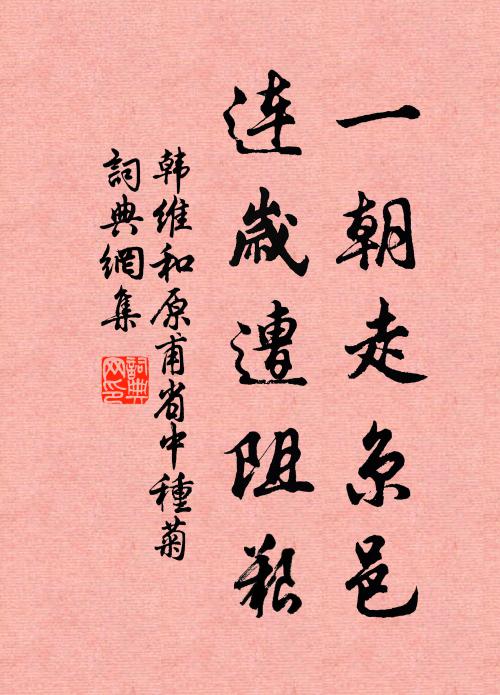 一朝走京邑
连岁遭阻艰
韩维和原甫省中種菊
詞典網集
詞典網印